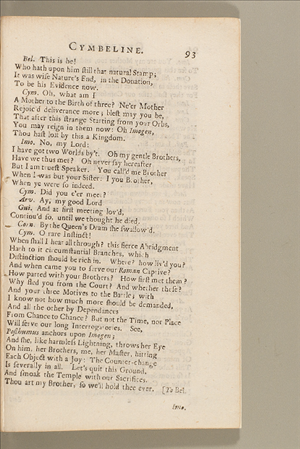 CYMBELINE. 93
Bel. This is he!
Who hath upon him still that natural Stamp;
It was wise Nature's End, in the Donation,
To be his Evidence now.
Cym. Oh, what am I
A Mother to the Birth of three? Ne'er Mother
Rejoic'd deliverance more; blest may you be,
That after this strange Starting from your Orbs,
You may reign in them now: Oh Imogen,
Thou hast lost by this a Kingdom.
Imo. No, my Lord:
I have got two Worlds by't. Oh my gentle Brothers,
Have we thus met? Oh never say hereafter
But I am truest Speaker. You call'd me Brother
When I was but your Sister: I you Brother,
When ye were so indeed.
Cym. Did you e'er meet?
Arv. Ay, my good Lord
Guid. And at first meeting lov'd,
Continu'd so, until we thought he died.
Corn. By the Queen's Dram she swallow'd.
Cym. O rare Instinct!
When shall I hear all through? this fierce Abridgment
Hath to it circumstantial Branches, which
Distinction should be rich in. Where? how liv'd you?
And when came you to serve our Roman Captive?
How parted with your Brothers? How first met them?
Why fled you from the Court? And whether these?
And your three Motives to the Battle; with
I know not how much more should be demanded,
And all the other by Dependances
From Chance to Chance? But not the Time, nor Place
Will serve our long Interrogatories. See,
Posthumus anchors upon Imogen;
And she, like harmless Lightning, throws her Eye
On him, her Brothers, me, her Master, hitting
Each Object with a Joy: The Counter-change
Is severally in all. Let's quit this Ground,
And smoak the Temple with our Sacrifices.
Thou art my Brother, so we'll hold thee ever. [To Bel.
Imo.